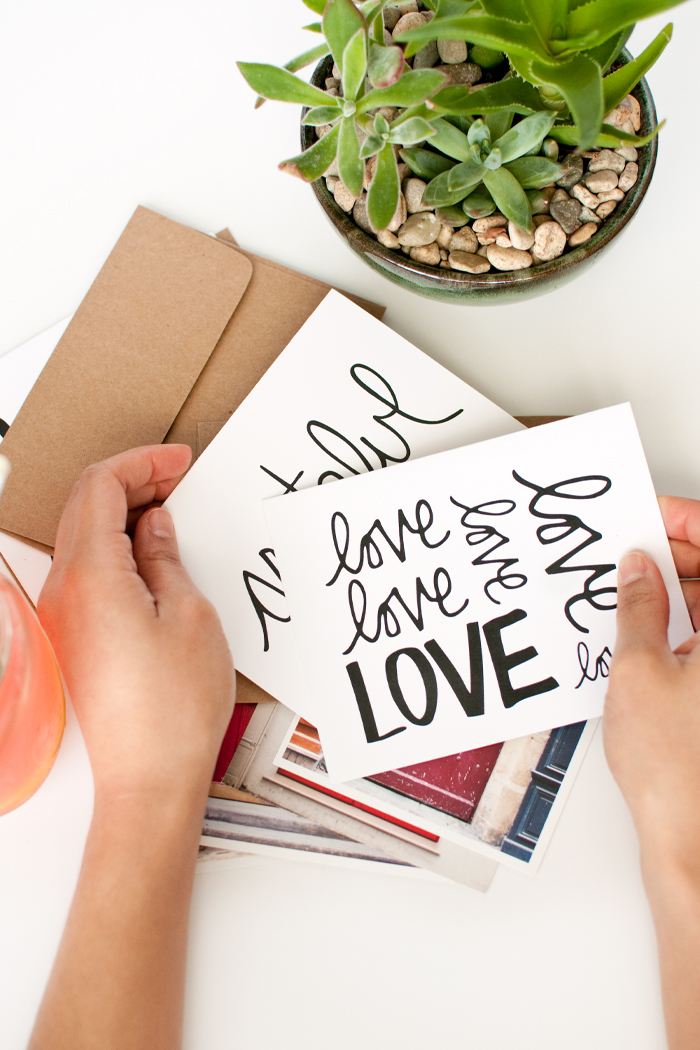 love
love
love
love
LOVE